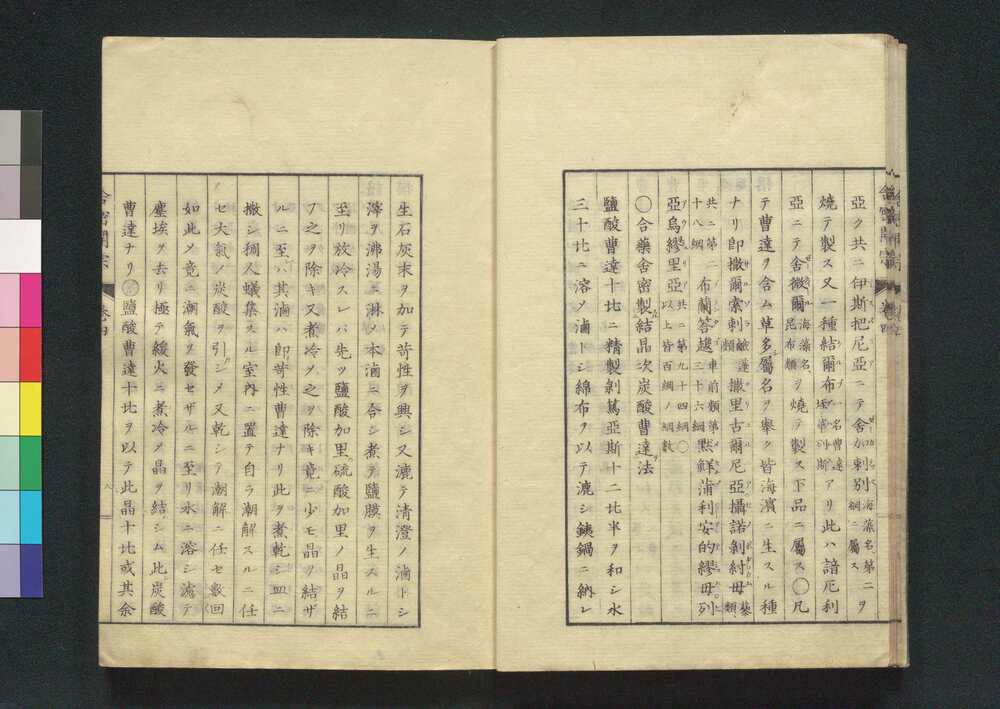 亞ク共ニ伊斯把尼亞ニテ舍加剌別海藻名第二綱ニ屬スヲ
燒テ製ス又一種結爾布一名曹達アリ此ハ諳厄利
亞ニテ舍微爾海藻名昆布類ヲ燒テ製ス下品ニ屬ス〇凡
テ曹達ヲ含ム草多シ屬名ヲ擧ク皆海濱ニ生スル種
ナリ即撒爾索剌撒里古爾尼亞攝諾剝紂毋藜類
共ニ第二十八綱布蘭答越車前類第三十六綱黙鮮蒲利安的繆毋列
亞烏繆里亞共ニ第九十四綱〇以上皆百綱ノ綱數
〇合藥舍密製結晶次炭酸曹達法
鹽酸曹達十比ニ精製剝篤亞斯十二比半ヲ和シ水
三十比ニ溶メ滷トシ綿布ヲ以テ漉シ銕鍋ニ納レ
舍密開宗 卷四
生石灰末ヲ加テ苛性ヲ興シ又漉テ清澄ノ滷トシ
滓ヲ沸湯ニ淋メ本滷ニ合シ煮テ鹽膜ヲ生スルニ
至リ放冷スレバ先ツ鹽酸加里硫酸加里ノ晶ヲ結
フ之ヲ除キ又煮冷メ之ヲ除キ竟ニ少モ晶ヲ結ザ
ルニ至ハ其滷ハ即苛性曹達ナリ此ヲ煮乾シ皿ニ
撒シ稠人蟻集スル室內ニ置テ自ラ潮解スルニ任
セ大氣ノ炭酸ヲ引シメ又乾シテ潮解ニ任セ數回
如此メ竟ニ潮氣ヲ發セザルニ至リ水ニ溶シ濾テ
塵埃ヲ去リ極テ緩火ニ煮冷メ晶ヲ結シム此炭酸
曹達ナリ鹽酸曹達十比ヲ以テ此晶十比或其余
舍密開宗 卷四 八